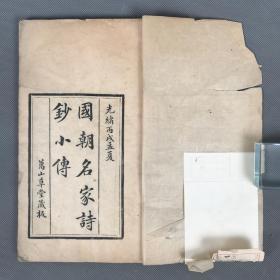 光緒丙戌孟夏
國朝名家詩
鈔小傳
萬山草堂藏板